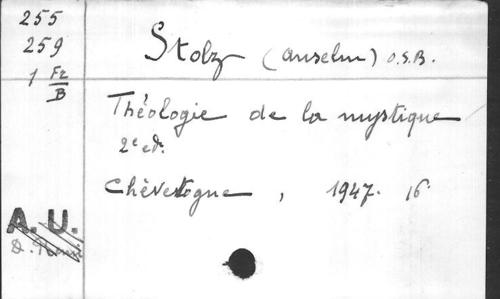 255
259
1 Fr
B
Stolz (Anselm) O.S.B.
Théologie de la mystique
2e ed.
Chèvetogne, 1947. 16
A. U.